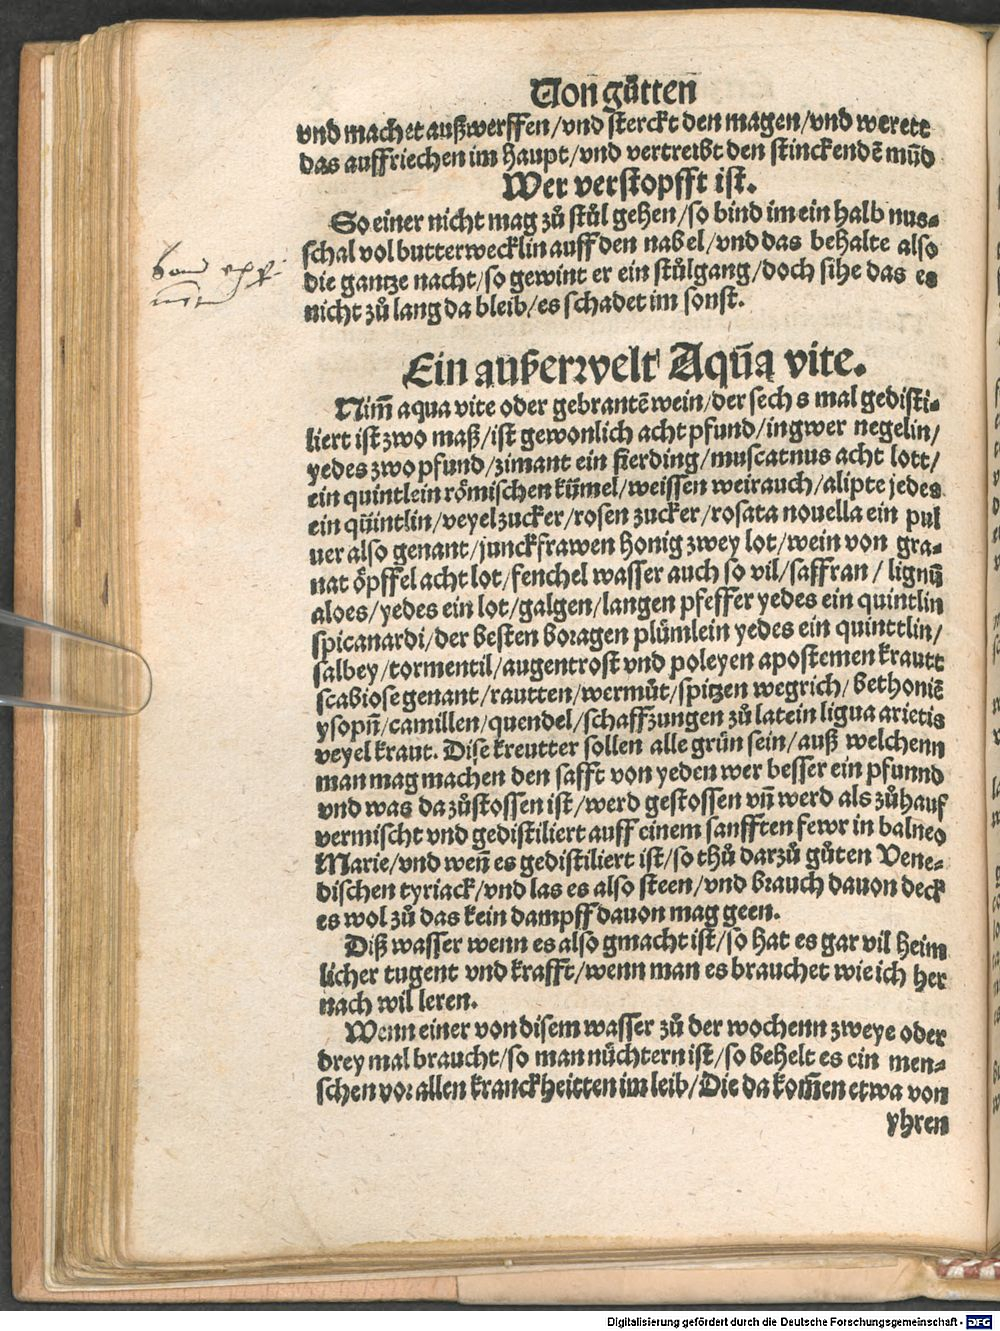 Von̄ gůtten̄
vnd machet außwerffen/vnd sterckt den magen/vnd werett
das auffriechen im haupt/vnd vertreibt den stinckendē mūd
Wer verstopfft ist.
So einer nicht mag zů stůl gehen/so bind im ein halb nus⸗
schal vol butterwecklin auff den nabel/vnd das behalte also
die gantze nacht/so gewint er ein stůlgang/doch sihe das es
nicht zů lang da bleib/es schadet im sonst.
Ein außerwelt Aqūa vite.
Nim̄ aqua vite oder gebrantē wein/der sech s mal gedisti⸗
liert ist zwo maß/ist gewonlich acht pfund/ingwer negelin/
yedes zwo pfund/zimant ein fierding/muscatnus acht lott/
ein quintlein römischen kūmel/weissen weirauch/alipte jedes
ein qūintlin/veyelzucker/rosen zucker/rosata nouella ein pul
uer also genant/junckfrawen honig zwey lot/wein von gra⸗
nat öpffel acht lot/fenchel wasser auch so vil/saffran/lignū
aloes/yedes ein lot/galgen/langen pfeffer yedes ein quintlin
spicanardi/der besten boragen plümlein yedes ein quinttlin/
salbey/tormentil/augentrost vnd poleyen apostemen krautt
scabiose genant/rautten/wermůt/spitzen wegrich/bethoniē
ysopn̄/camillen/quendel/schaffzungen zů latein ligua arietis
veyel kraut. Dise kreutter sollen alle grün sein/auß welchenn
man mag machen den safft von yeden wer besser ein pfunnd
vnd was da zůstossen ist/werd gestossen vn̄ werd als zůhauf
vermischt vnd gedistiliert auff einem sanfften fewr in balneo
Marie/vnd wen̄ es gedistiliert ist/so thů darzů gůten Vene⸗
dischen tyriack/vnd las es also steen/vnd brauch dauon deck
es wol zů das kein dampff dauon mag geen.
Diß wasser wenn es also gmacht ist/so hat es gar vil heim
licher tugent vnd krafft/wenn man es brauchet wie ich her
nach wil leren.
Wenn einer von disem wasser zů der wochenn zweye oder
drey mal braucht/so man nüchtern ist/so behelt es ein men⸗
schen vor allen kranckheitten im leib/Die da kom̄en etwa von
yhren
Digitalisierung gefördert durch die Deutsche Forschungsgemeinschaft - DFG